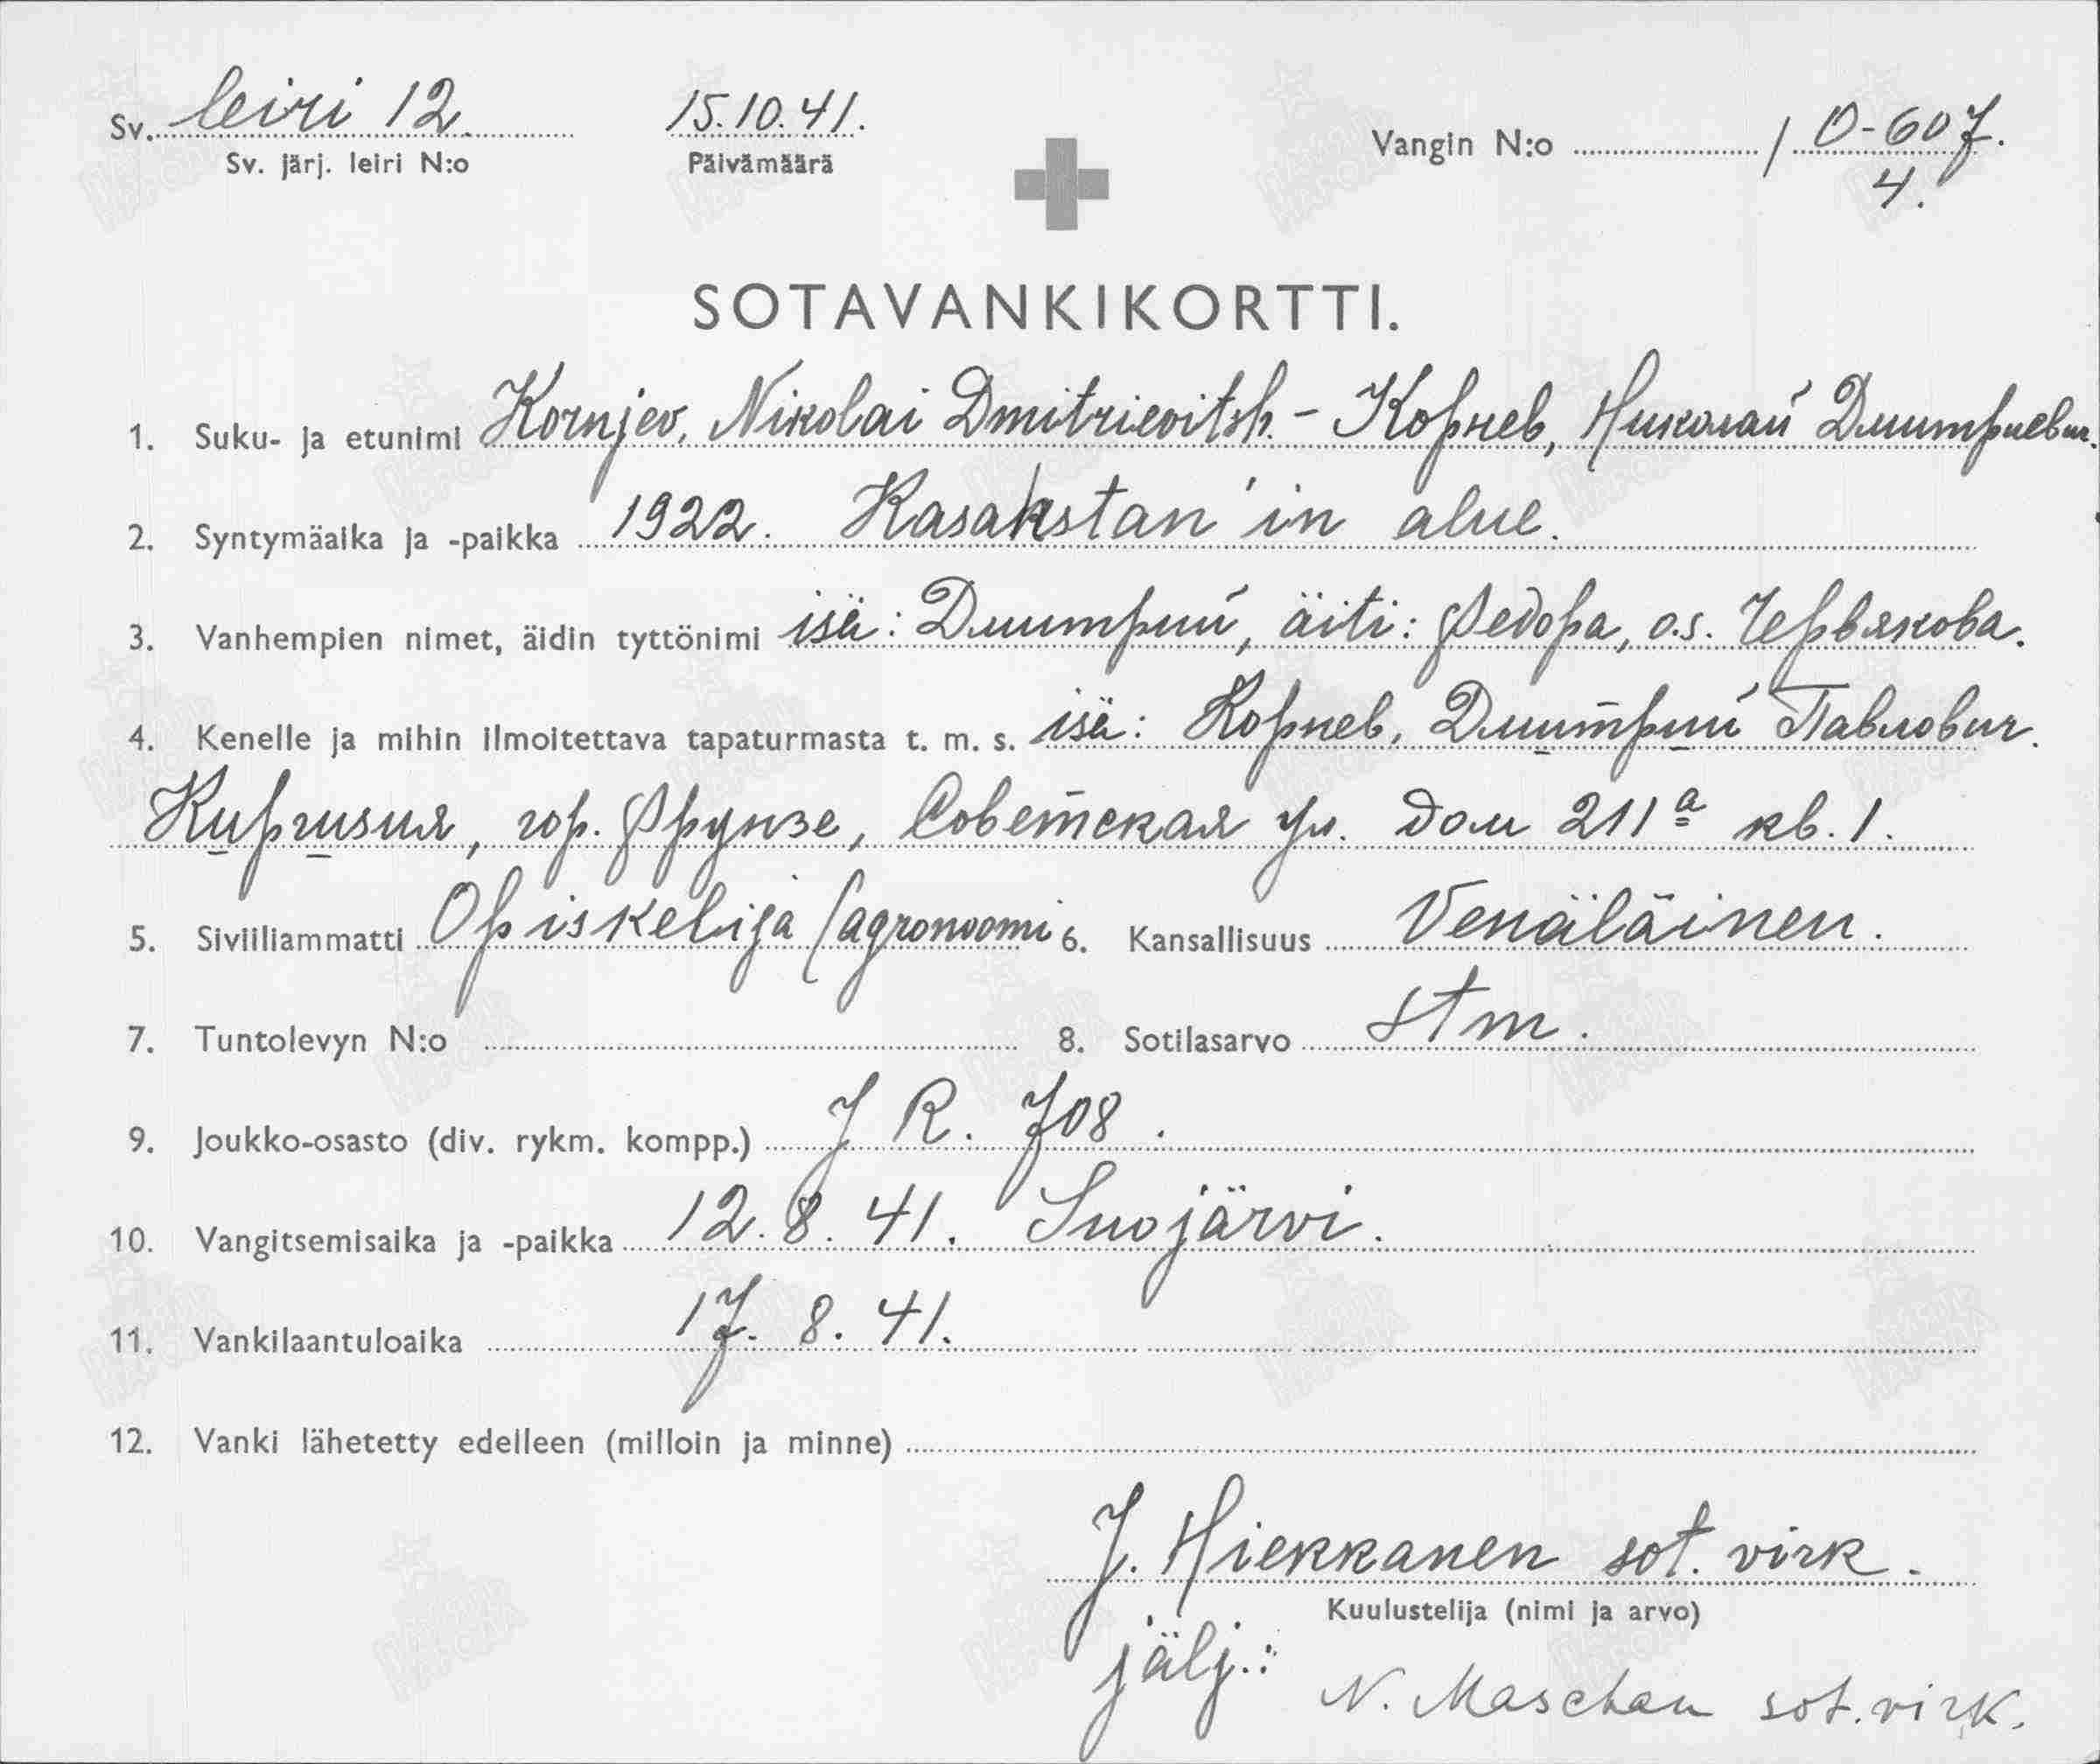 Sv. leiri 12. 15.10.41. Vangin N:o / O-607.
Sv. järj. leiri N:o Päivämäärä 4.
SOTAVANKIKORTTI.
1. Suku- ja etunimi Kornjev, Nikolai Dmitrievitsh. - Корнев, Николай Дмитриевич.
2. Syntymäaika ja -paikka 1922. Kasakstan'in alue.
3. Vanhempien nimet, äidin tyttönimi isä: Дмитрий, äiti: Федора, o.s. Червякова.
4. Kenelle ja mihin ilmoitettava tapaturmasta t. m. s. isä: Корнев, Дмитрий Павлович.
Киргизия, гор. Фрунзе, Советская ул. дом 211а кв. 1.
5. Siviiliammatti Opiskelija /agronoomi 6. Kansallisuus Venäläinen.
7. Tuntolevyn N:o 8. Sotilasarvo stm.
9. Joukko-osasto (div. rykm. kompp.) J R. 708.
10. Vangitsemisaika ja -paikka 12.8.41. Suojärvi.
11. Vankilaantuloaika 17.8.41.
12. Vanki lähetetty edelleen (milloin ja minne)
J. Hiekkanen sot. virk.
Kuulustelija (nimi ja arvo)
jälj.: N. Maschan sot.virk.